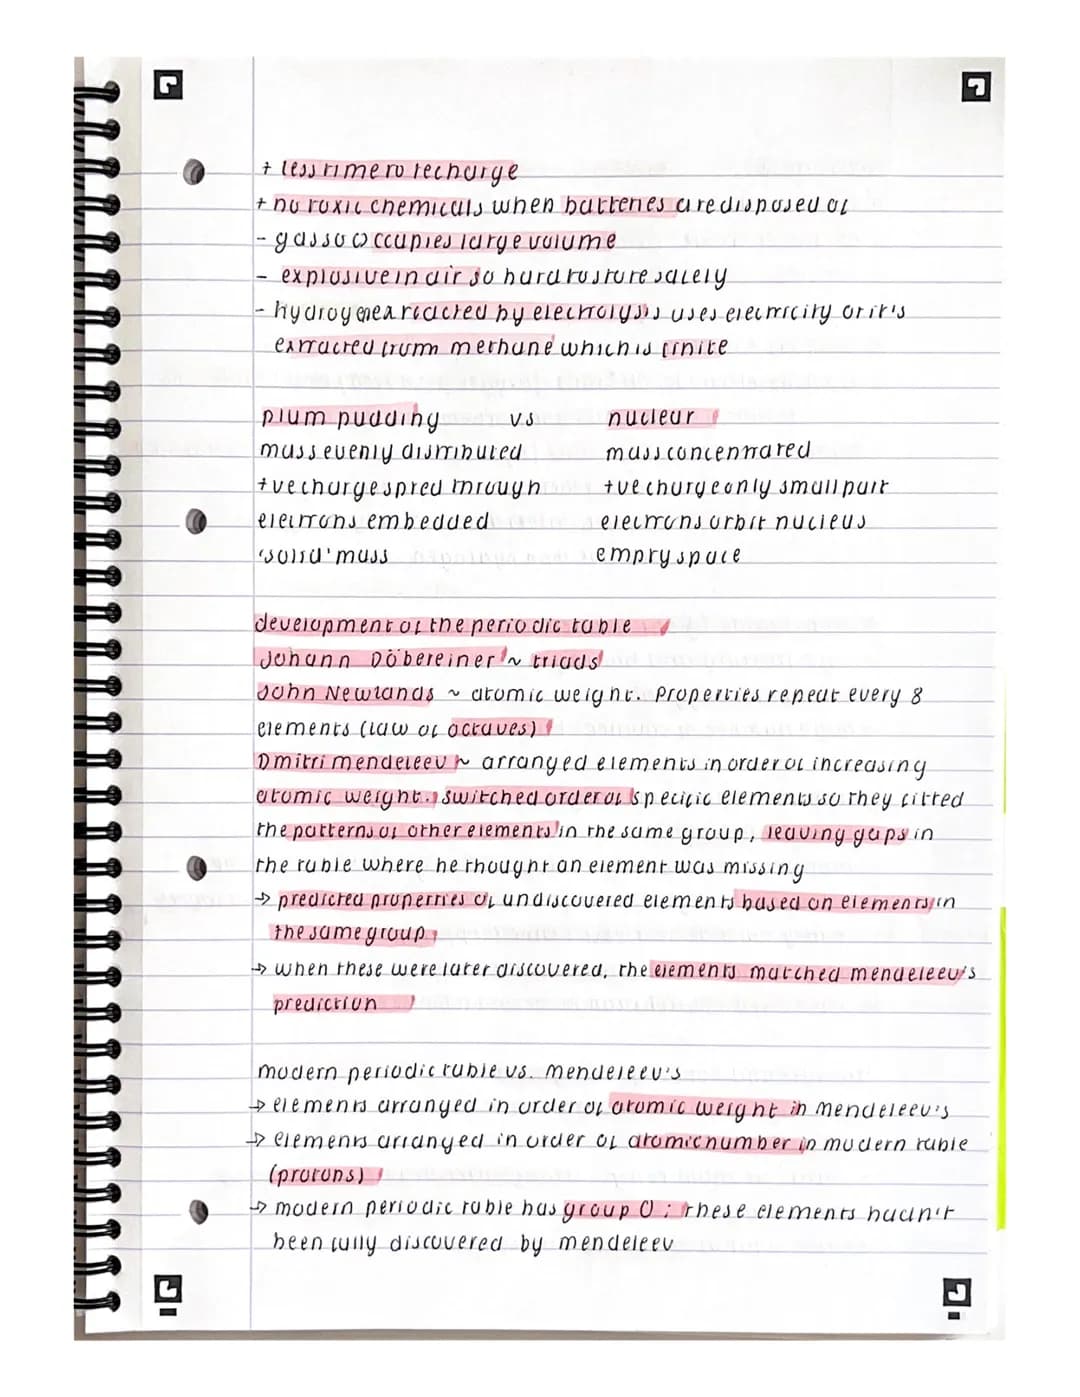 + less time to recharge
+ no toxic chemicals when batteries are disposed of
- gas so occupies large volume
- explosive in air so hard to store safely
- hydrogen reacted by electrolysis uses electricity or it's
extracted from methane which is finite
plum pudding vs nuclear
mass evenly distributed mass concentrated
+ve charge spred through +ve charge only small part
electrons embedded electrons orbit nucleus
'solid' mass empty space
development of the periodic table
Johann Döbereiner ~ triads
John Newlands ~ atomic weight. Properties repeat every 8
elements (law of octaves)
Dmitri mendeleev ~ arranged elements in order of increasing
atomic weight. switched order of specific elements so they fitted
the patterns of other elements in the same group, leaving gaps in
the table where he thought an element was missing
→ predicted properties of undiscovered elements based on elements in
the same group.
→ when these were later discovered, the elements matched mendeleev's
prediction
modern periodic table vs. mendeleev's
→ elements arranged in order of atomic weight in mendeleev's
→ elements arranged in order of atomic number in modern table
(protons)
→ modern periodic table has group 0 ; these elements hadn't
been fully discovered by mendeleev